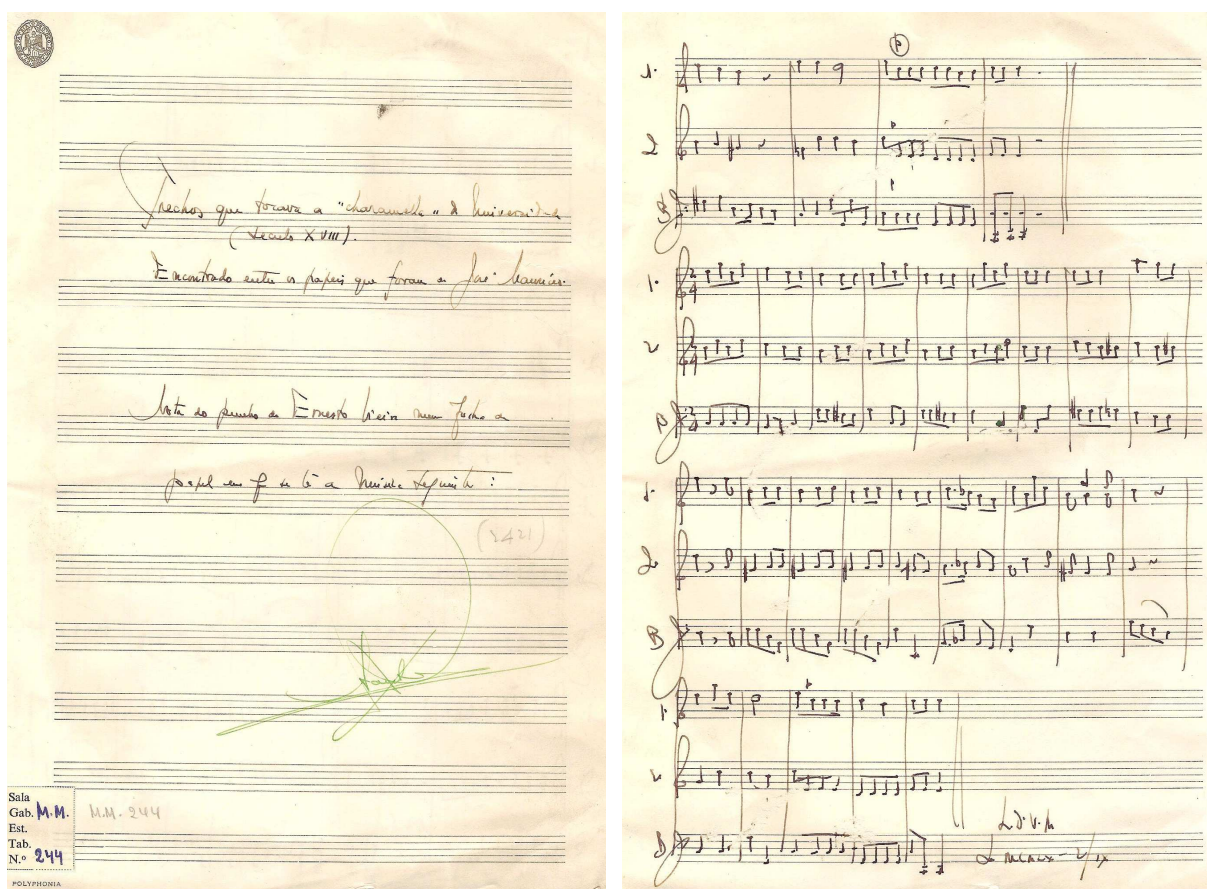 Trechos que tocava a "charamella" da Universidade
(Seculo XVIII).
Encontrado entre os papeis que foram de José Mauricio.
Nota do punho de Ernesto Vieira num
papel em q se lê a Musica seguinte:
(2421)
Sala
Gab. M.M.
Est.
Tab.
N.º 244
M.M. 244
POLYPHONIA
1.
2
B
2/4
1.
2/4
2
2/4
B
1.
2
B
1.
2
B
L.D.V.M